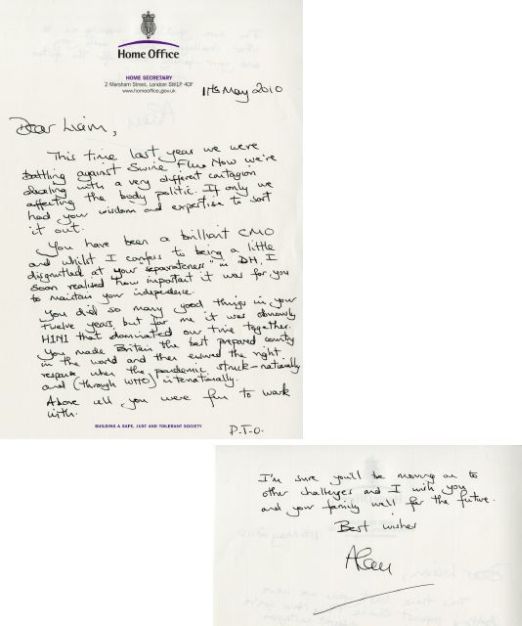 Home Office
HOME SECRETARY
2 Marsham Street, London SW1P 4DF
www.homeoffice.gov.uk
11th May 2010
Dear Liam,
This time last year we were
battling against Swine Flu. Now we're
dealing with a very different contagion
affecting the body politic. If only we
had your wisdom and expertise to sort
it out.
You have been a brilliant CMO
and whilst I confess to being a little
disgruntled at your separateness in DH, I
soon realised how important it was for you
to maintain your independence.
You did so many good things in your
twelve years, but for me it was obviously
H1N1 that dominated our time together.
You made Britain the best prepared country
in the world and then ensured the right
response when the pandemic struck - nationally
and (through WHO) internationally.
Above all you were fun to work
with.
BUILDING A SAFE, JUST AND TOLERANT SOCIETY
P.T.O.
I'm sure you'll be moving on to
other challenges and I wish you
and your family well for the future.
Best wishes
Alan